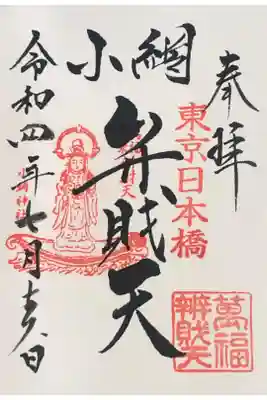 奉拝
東京日本橋
小網
弁財天
令和四年七月十六日
小網神社
萬福
辨財天